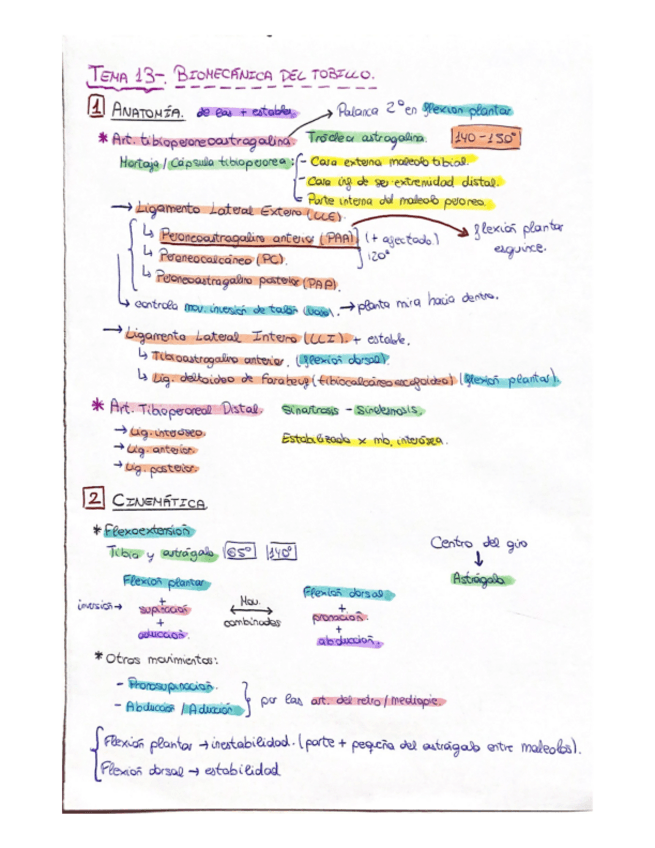 TEMA 13-. BIOMECÁNICA DEL TOBILLO.
1 ANATOMÍA. de las + estables → Palanca 2º en flexión plantar
* Art. tibioperoneoastragalina. Tróclea astragalina. 140-150º
Mortaja / Cápsula tibioperonea: - Cara externa maleolo tibial.
- Cara inf de su extremidad distal.
- Parte interna del maleolo peroneo.
→ Ligamento Lateral Externo (LLE).
↳ Peroneoastragalino anterior (PAA) (+ afectado.) → flexión plantar
esguince.
↳ Peroneocalcáneo (PC). 120º
↳ Peroneoastragalino posterior (PAP).
↳ controla mov. inversión de talón (varo). → planta mira hacia dentro.
→ Ligamento Lateral Interno (LLI). + estable.
↳ Tibioastragalino anterior. (flexión dorsal).
↳ Lig. deltoideo de Farabeuf (tibiocalcáneoescafoideo) (flexión plantar).
* Art. Tibioperoneal Distal. Sinartrosis - Sindesmosis.
→ Lig. interóseo.
→ Lig. anterior.
→ Lig. posterior.
Estabilizada x mb. interósea.
2 CINEMÁTICA
* Flexoextensión
Tibia y astrágalo 65º 140º
Centro del giro
↓
Astrágalo
Flexión plantar
inversión → +
supinación
+
aducción.
Mov.
↔
combinados
Flexión dorsal
+
pronación.
+
abducción.
* Otros movimientos:
- Pronosupinación.
- Abducción / Aducción } por las art. del retro / mediopie.
Flexión plantar → inestabilidad. (parte + pequeña del astrágalo entre maleolos).
Flexión dorsal → estabilidad